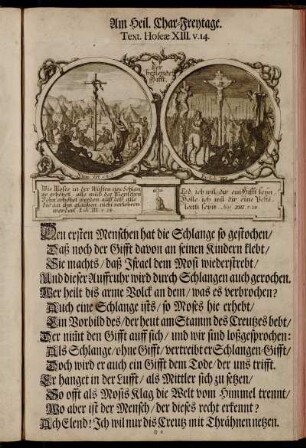 Am Heil. Char-Freytage.
Text. Hoseæ XIII. v. 14.
Der
heylende
Gifft.
Wie Moses in der Wüsten eine Schlan-
ge erhöhet, also muß des Menschen
Sohn erhöhet werden, auff daß alle
die an ihn glauben nicht verlohren
werden. Joh. III. v. 14.
Tod, ich will dir ein Gifft seyn,
Hölle ich will dir eine Pesti-
lentz seyn. Hos. XIII. v. 14.
Den ersten Menschen hat die Schlange so gestochen/
Daß noch der Gifft davon an seinen Kindern klebt/
Sie machts/ daß Israel dem Mosi wiederstrebt/
Und dieser Auffruhr wird durch Schlangen auch gerochen.
Wer heilt diß arme Volck an dem/ was es verbrochen?
Auch eine Schlange ists/ so Moses hie erhebt/
Ein Vorbild des/ der heut am Stamm des Creutzes bebt/
Der nimt den Gifft auff sich/ und wir sind loßgesprochen:
Als Schlange/ ohne Gifft/ vertreibt er Schlangen-Gifft/
Doch wird er auch ein Gifft dem Tode/ der uns trifft.
Er hanget in der Lufft/ als Mittler sich zu setzen/
So offt als Mosis Klag die Welt vom Himmel trennt/
Wo aber ist der Mensch/ der dieses recht erkennt?
Ach Elend! Ich wil nur dis Creutz mit Thrähnen netzen.